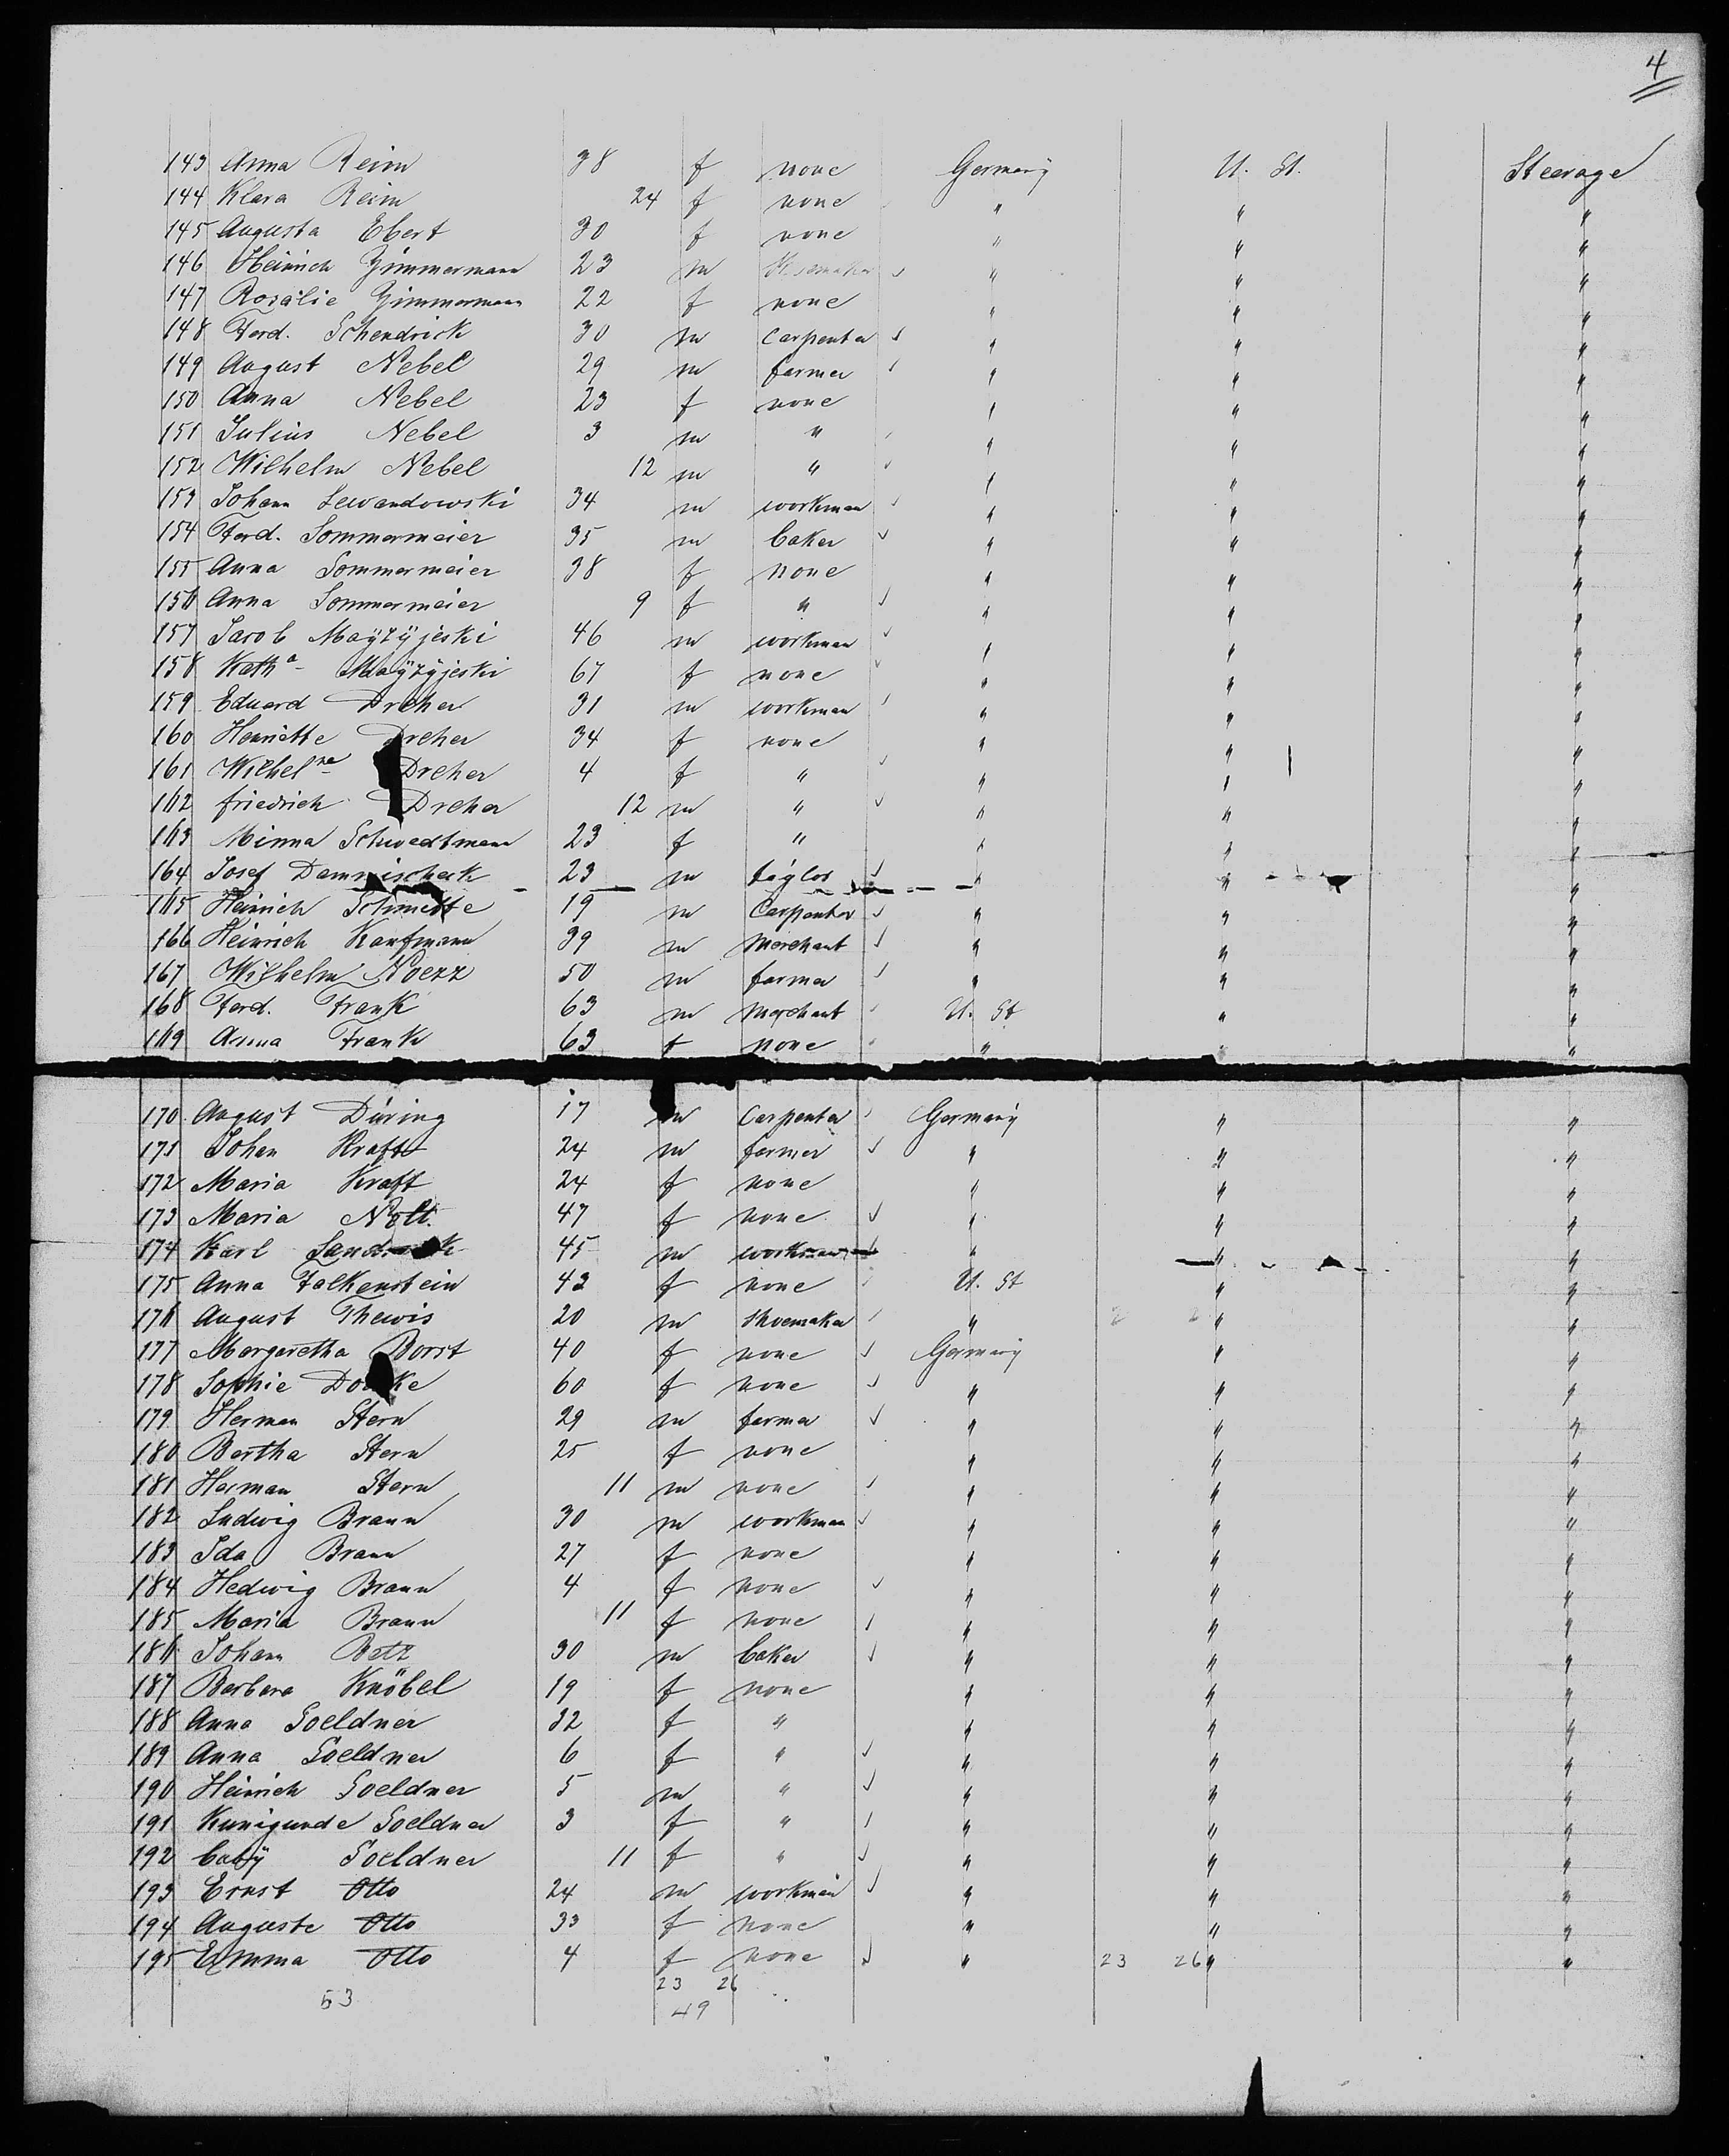 4
143 Anna Reim 38 f none Germany U. St. Steerage
144 Klara Reim 24 f none " " "
145 Augusta Ebert 30 f none " " "
146 Heinrich Zimmermann 23 m Shoemaker " " "
147 Rosalie Zimmermann 22 f none " " "
148 Ferd. Schendrick 30 m Carpenter " " "
149 August Nebel 29 m farmer " " "
150 Anna Nebel 23 f none " " "
151 Julius Nebel 3 m " " " "
152 Wilhelm Nebel 12 m " " " "
153 Johann Lewandowski 34 m workman " " "
154 Ferd. Sommermeier 35 m baker " " "
155 Anna Sommermeier 38 f none " " "
156 Anna Sommermeier 9 f " " " "
157 Jacob Mayzyjeski 46 m workman " " "
158 Katha Mayzyjeski 67 f none " " "
159 Eduard Dreher 31 m workman " " "
160 Henriette Dreher 34 f none " " "
161 Wilhelne Dreher 4 f " " " "
162 friedrich Dreher 12 m " " " "
163 Minna Schwedtmann 23 f " " " "
164 Josef 23 m taylor " " "
165 Heinrich 19 m Carpenter " " "
166 Heinrich Kaufmann 39 m Merchant " " "
167 Wilhelm Noezz 50 m farmer " " "
168 Ferd. Frank 63 m Merchant U. St " "
169 Anna Frank 63 f none " " "
170 August Düring 17 m Carpenter Germany " "
171 Johan Kraft 24 m farmer " " "
172 Maria Kraft 24 f none " " "
173 Maria Nolt. 47 f none " " "
174 Karl 45 m workman " " "
175 Anna Falkenstein 42 f none U. St " "
176 August Thewis 20 m Shoemaker " 2 2 " "
177 Margaretha Borst 40 f none Germany " "
178 Sophie 60 f none " " "
179 Herman Stern 29 m farmer " " "
180 Bertha Stern 25 f none " " "
181 Herman Stern 11 m none " " "
182 Ludwig Braun 30 m workman " " "
183 Ida Braun 27 f none " " "
184 Hedwig Braun 4 f none " " "
185 Maria Braun 11 f none " " "
186 Johann Betz 30 m baker " " "
187 Barbara Knöbel 19 f none " " "
188 Anna Goeldner 32 f " " " "
189 Anna Goeldner 6 f " " " "
190 Heinrich Goeldner 5 m " " " "
191 Kunigunde Goeldner 3 f " " " "
192 baby Goeldner 11 f " " " "
193 Ernst Otto 24 m workman " " "
194 Auguste Otto 33 f none " " "
195 Emma Otto 4 f none " 23 26 " "
23 26
53 49